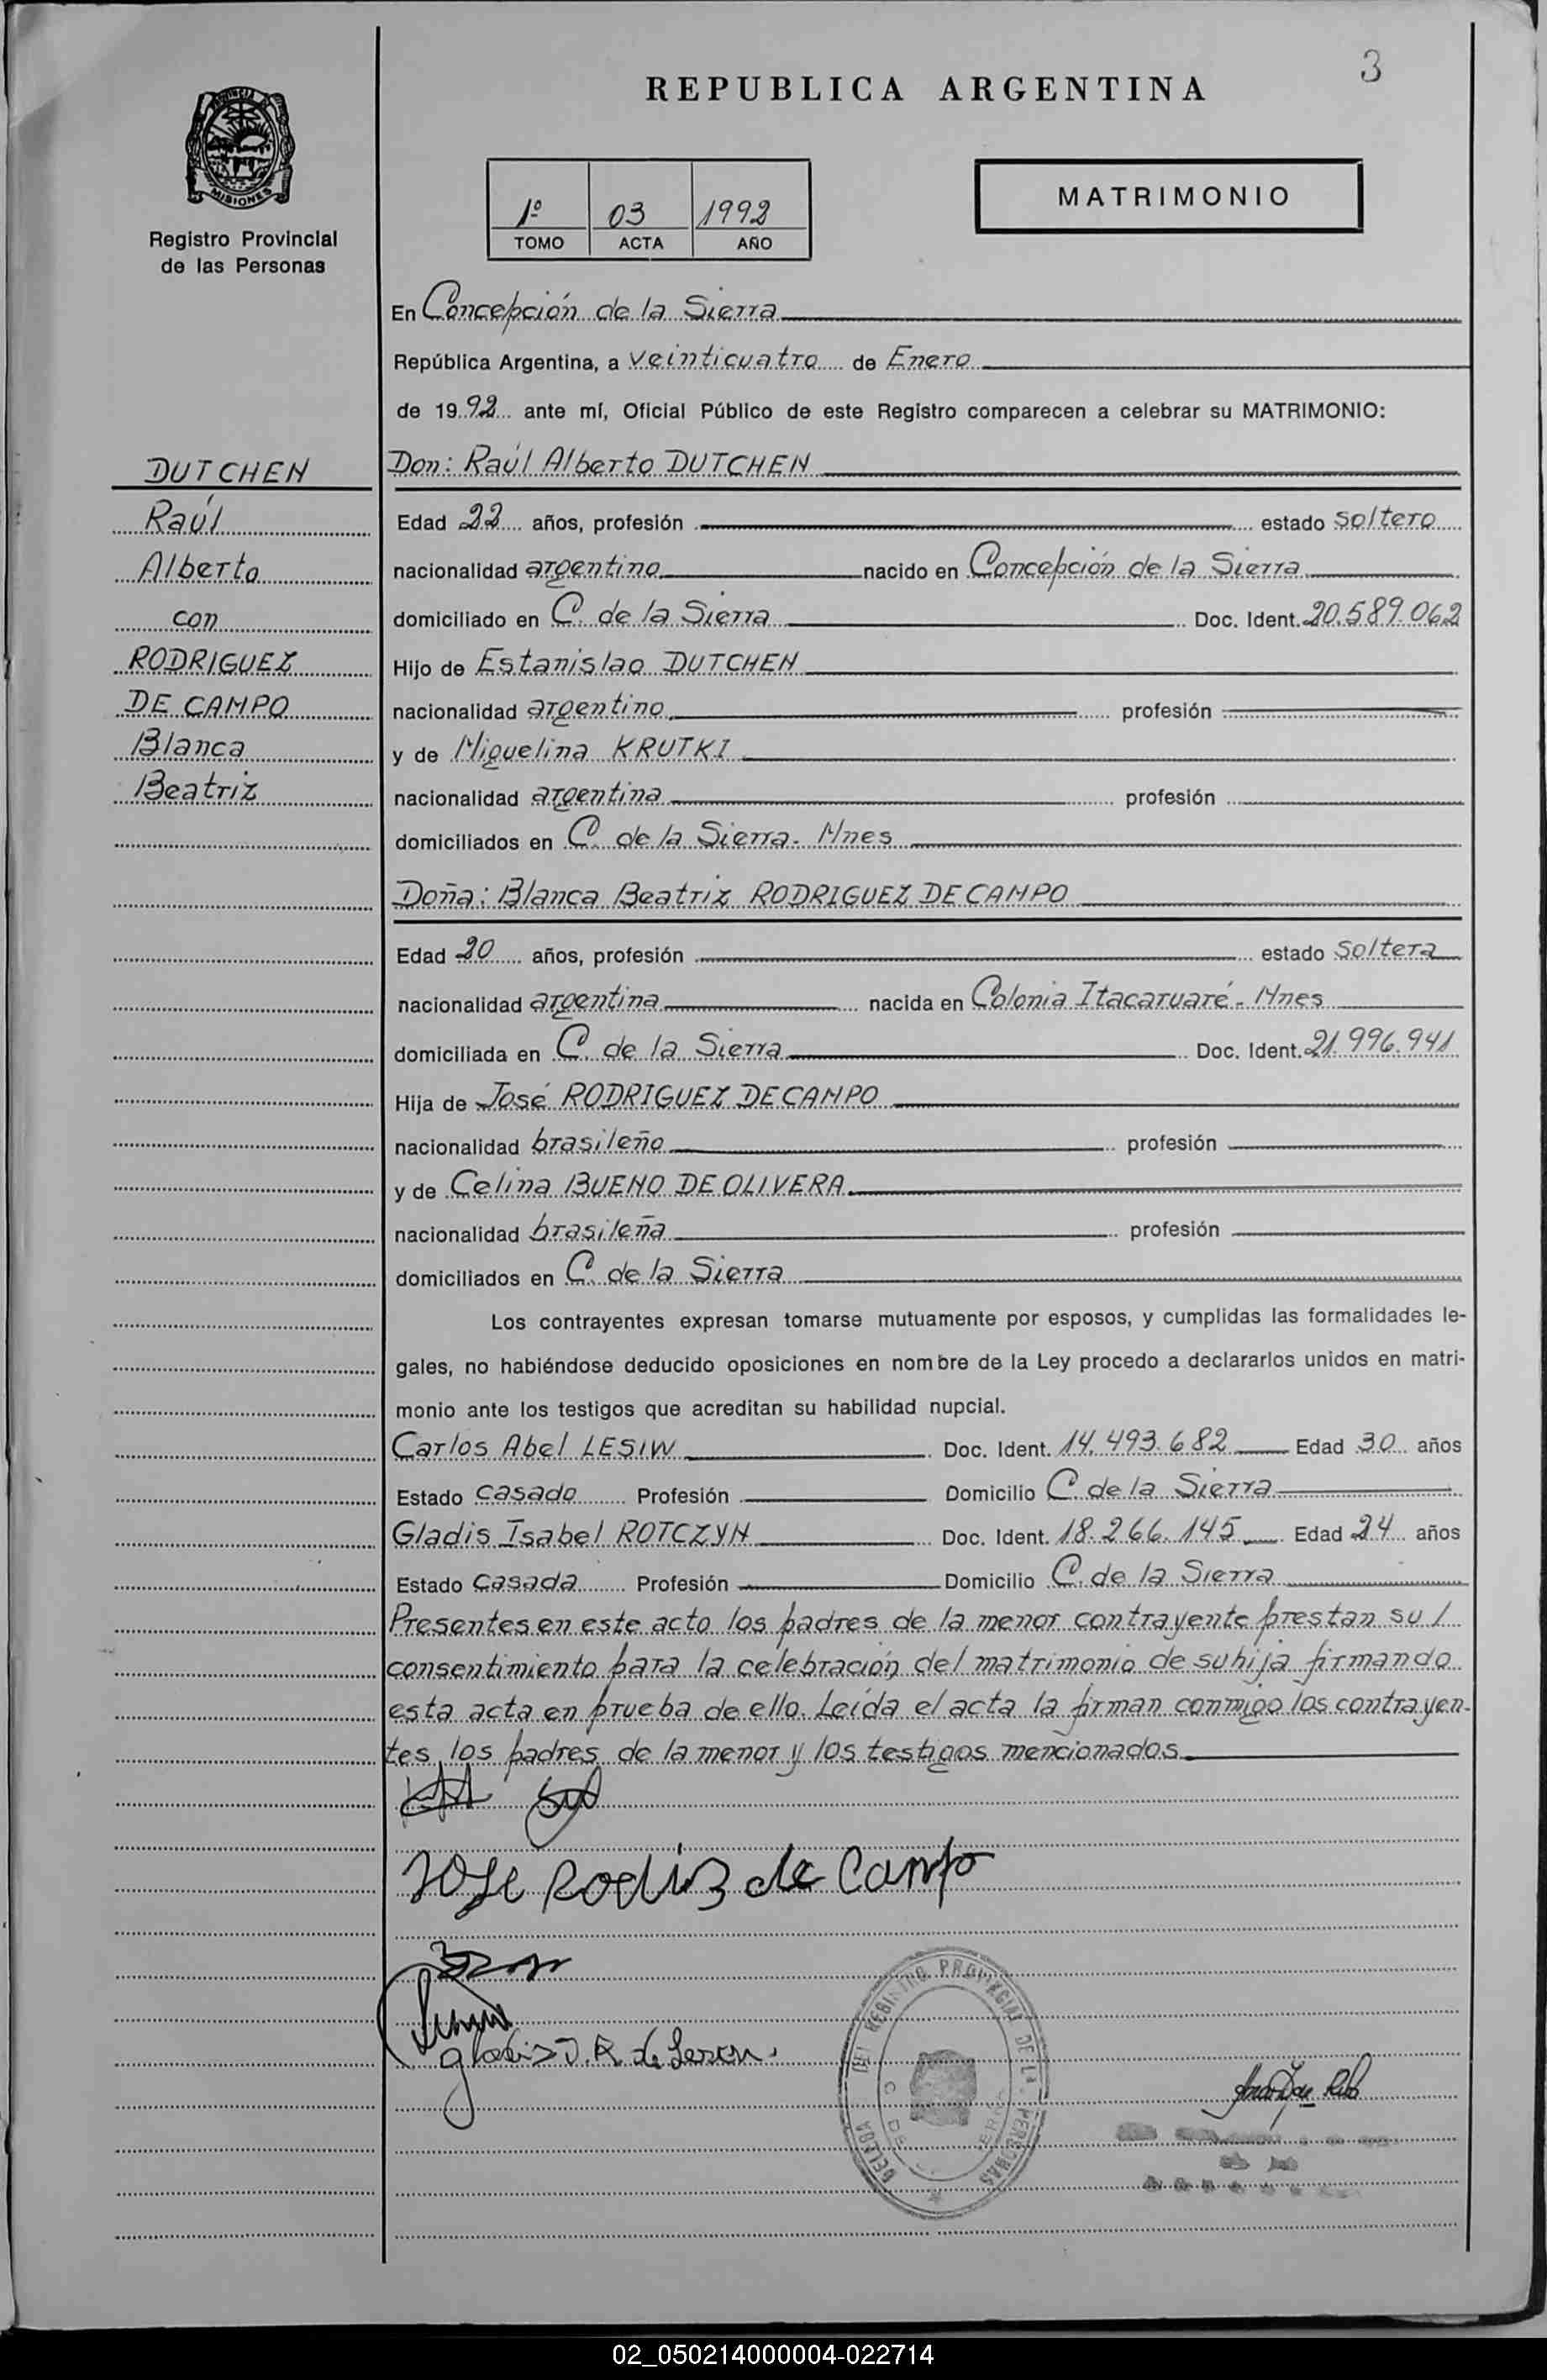 3
REPUBLICA ARGENTINA
PROVINCIA DE
MISIONES
Registro Provincial
de las Personas
1º 03 1992
TOMO ACTA AÑO
MATRIMONIO
En Concepción de la Sierra
República Argentina, a veinticuatro de Enero
de 1992 ante mí, Oficial Público de este Registro comparecen a celebrar su MATRIMONIO:
DUTCHEN
Raúl
Alberto
con
RODRIGUEZ
DE CAMPO
Blanca
Beatriz
Don: Raúl Alberto DUTCHEN
Edad 22 años, profesión estado soltero
nacionalidad argentino nacido en Concepción de la Sierra
domiciliado en C. de la Sierra Doc. Ident. 20.589.062
Hijo de Estanislao DUTCHEN
nacionalidad argentino profesión
y de Miguelina KRUTKI
nacionalidad argentina profesión
domiciliados en C. de la Sierra - Mnes
Doña: Blanca Beatriz RODRIGUEZ DE CAMPO
Edad 20 años, profesión estado soltera
nacionalidad argentina nacida en Colonia Itacaruaré - Mnes
domiciliada en C. de la Sierra Doc. Ident. 21.996.941
Hija de José RODRIGUEZ DE CAMPO
nacionalidad brasileño profesión
y de Celina BUENO DE OLIVERA
nacionalidad brasileña profesión
domiciliados en C. de la Sierra
Los contrayentes expresan tomarse mutuamente por esposos, y cumplidas las formalidades le-
gales, no habiéndose deducido oposiciones en nombre de la Ley procedo a declararlos unidos en matri-
monio ante los testigos que acreditan su habilidad nupcial.
Carlos Abel LESIW Doc. Ident. 14.493.682 Edad 30 años
Estado casado Profesión Domicilio C. de la Sierra
Gladis Isabel ROTCZYN Doc. Ident. 18.266.145 Edad 24 años
Estado casada Profesión Domicilio C. de la Sierra
Presentes en este acto los padres de la menor contrayente prestan su /
consentimiento para la celebración del matrimonio de su hija firmando
esta acta en prueba de ello. Leída el acta la firman conmigo los contrayen-
tes, los padres de la menor y los testigos mencionados
Jose Rodriz de Campo
Gladis I. R. de
REGISTRO PROVINCIAL DE LAS PERSONAS
02_050214000004-022714